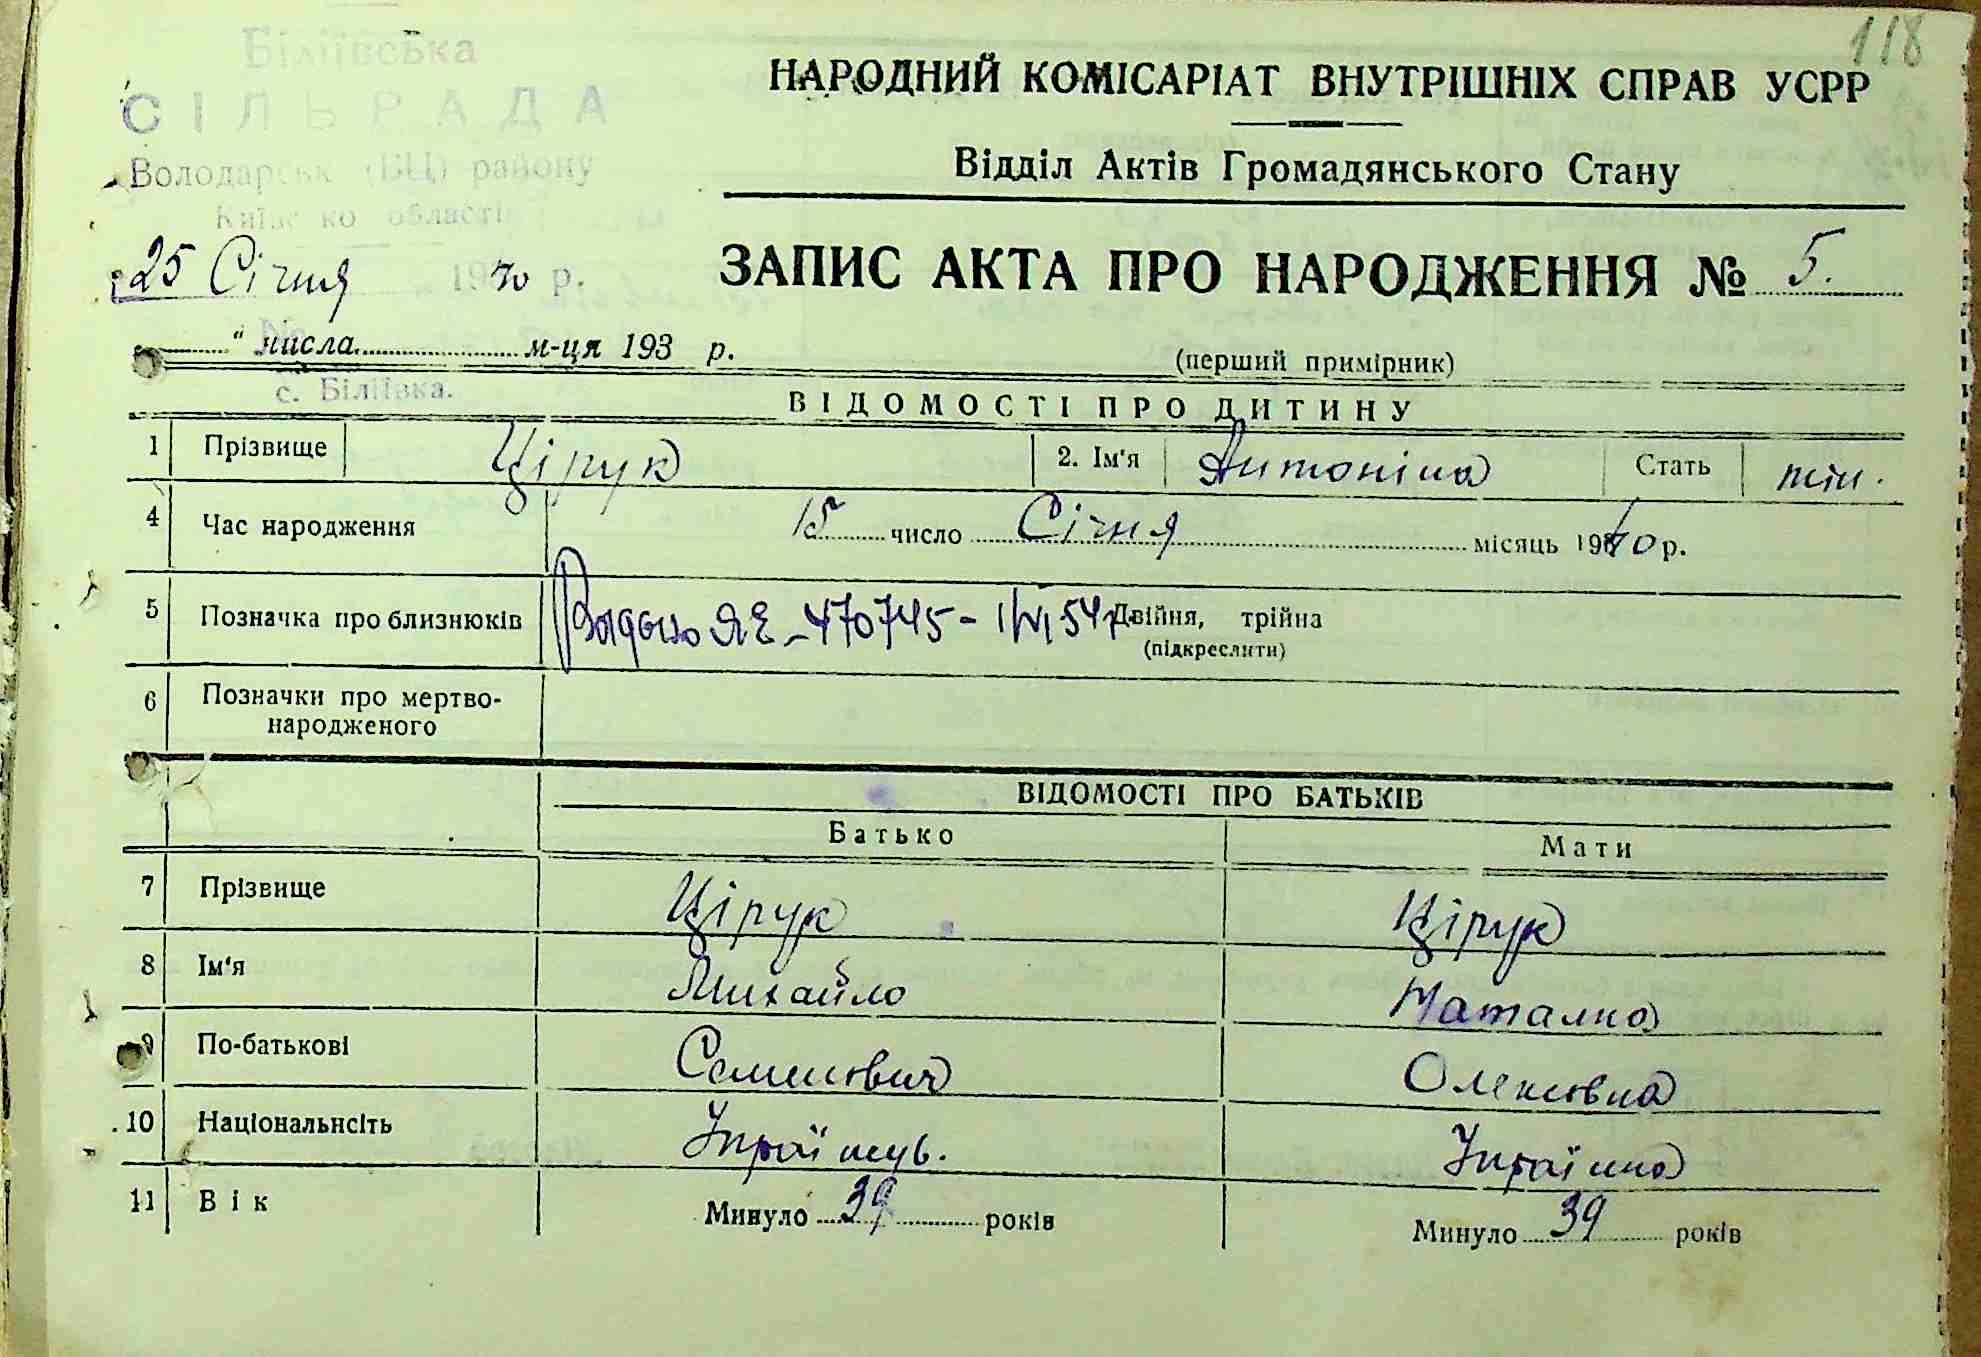 118
Біліївська
СІЛЬРАДА
Володарськ (БЦ) району
Київс ко області
25 Січня 1940 р.
с. Біліївка.
НАРОДНИЙ КОМІСАРІАТ ВНУТРІШНІХ СПРАВ УСРР
Відділ Актів Громадянського Стану
ЗАПИС АКТА ПРО НАРОДЖЕННЯ № 5.
" числа м-ця 193 р.
(перший примірник)
ВІДОМОСТІ ПРО ДИТИНУ
1 Прізвище Цірук 2. Ім'я Антоніна Стать жін.
4 Час народження 15 число Січня місяць 1940 р.
5 Позначка про близнюків ЯЕ-470745- Двійня, трійна
(підкреслити)
6 Позначки про мертво-
народженого
ВІДОМОСТІ ПРО БАТЬКІВ
Батько Мати
7 Прізвище Цірук Цірук
8 Ім'я Михайло Наталка
9 По-батькові Семенович Олексовна
10 Національнсіть Україна
11 Вік Минуло 39 років Минуло 39 років